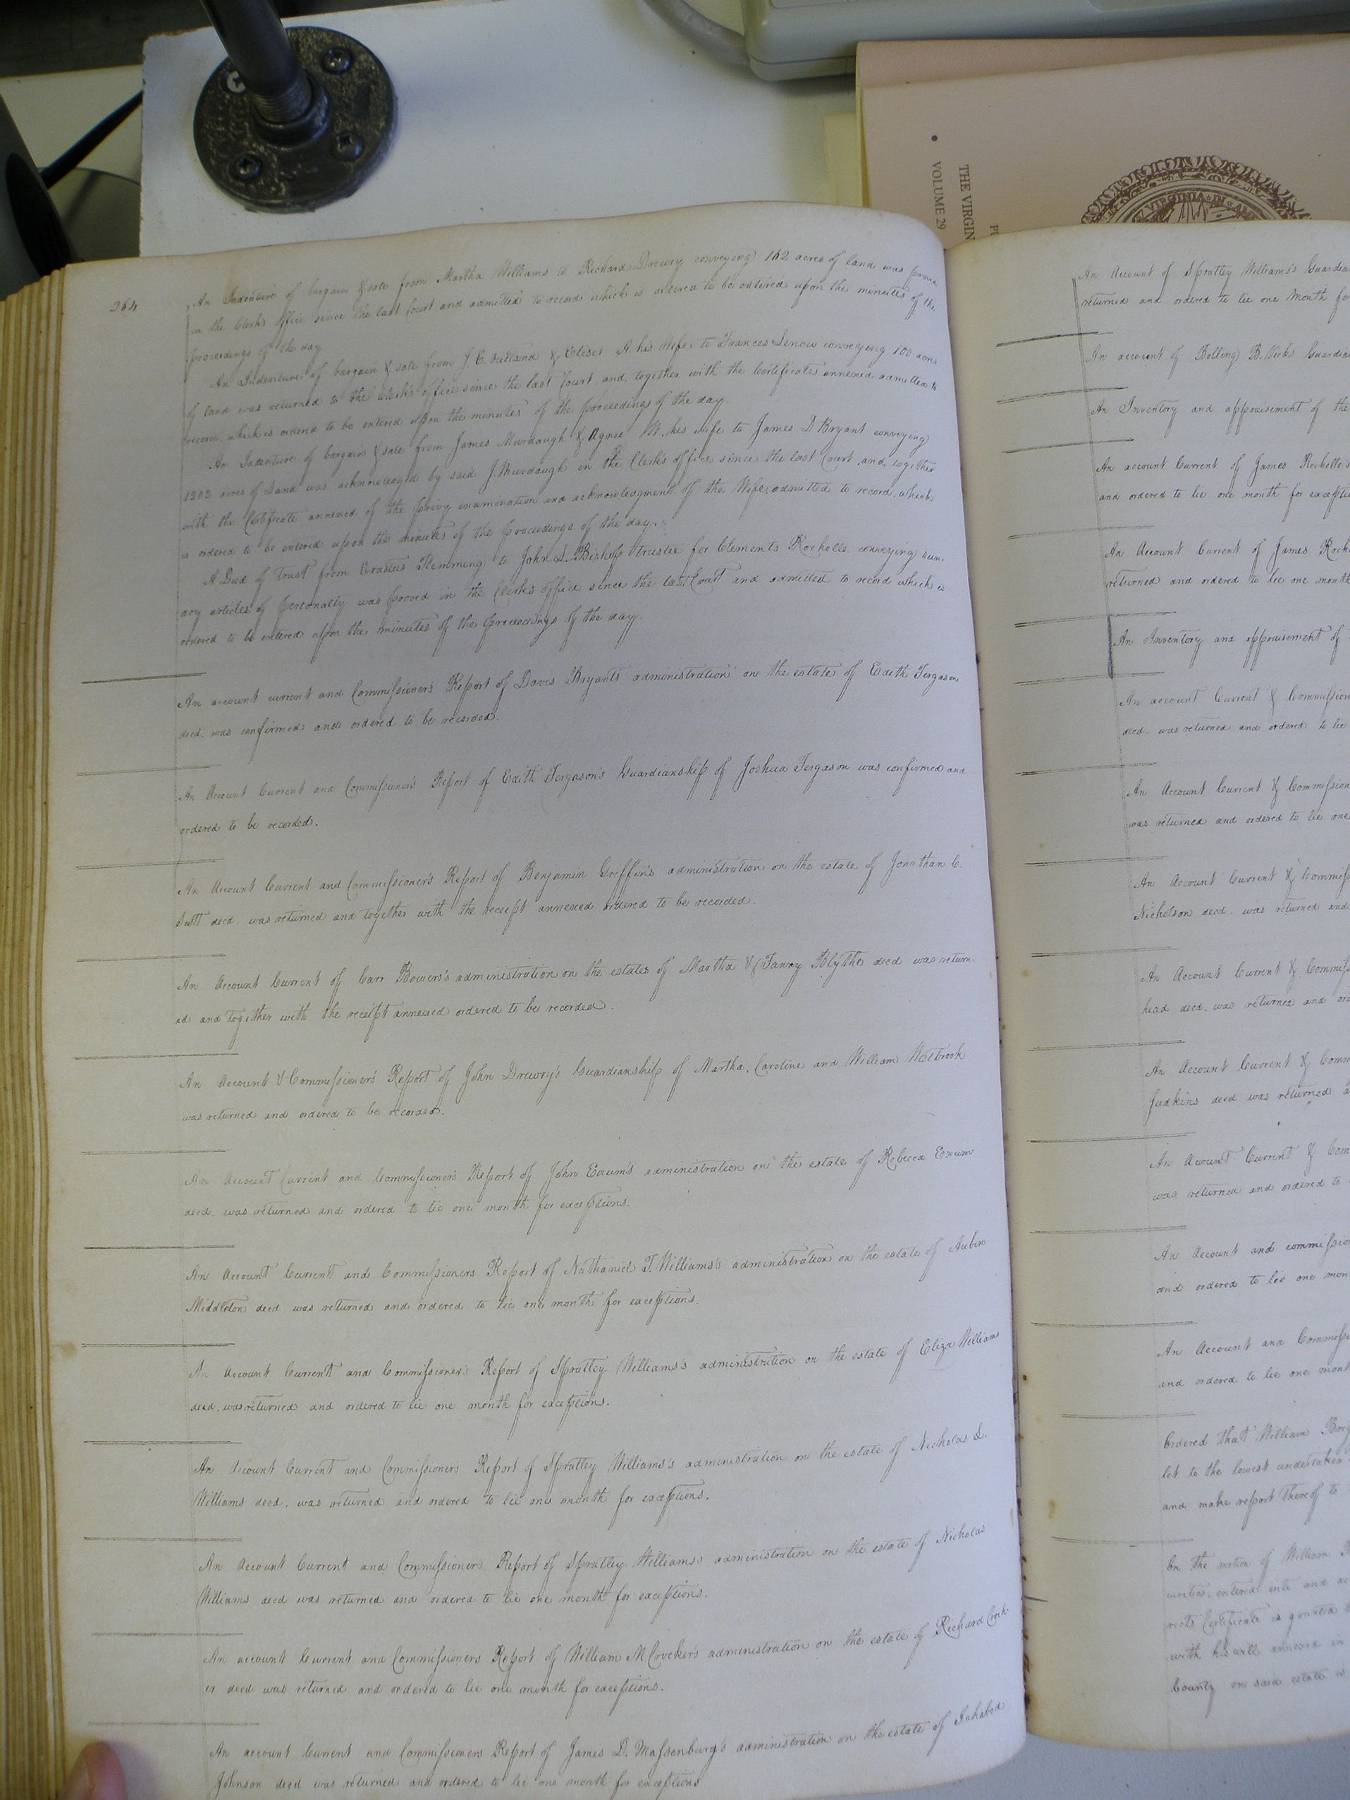 THE VIRGIN
VOLUME 29
VIRGINIA IN
264
An Indenture of bargain & sale from Martha Williams to Richard Drewry conveying 162 acres of land was proved
in the Clerks office since the last Court and admitted to record which is ordered to be entered upon the minutes of the
proceedings of the day
An Indenture of bargain & sale from J. E. & A his wife to Frances Lenow conveying 100 acres
of land was returned to the Clerks office since the last Court and together with the Certificates annexed admitted to
record which is ordered to be entered upon the minutes of the proceedings of the day
An Indenture of bargain & sale from James Murdaugh & Agnes W. his wife to James D Bryant conveying
acres of Land was acknowledged by said J. Murdaugh in the Clerks office since the last Court and together
with the Certificate annexed of the Privy examination and acknowledgment of the Wife admitted to record which
is ordered to be entered upon the minutes of the Proceedings of the day.
A Deed of Trust from Erastus Flemming to John S. Bishop trustee for Clements Rochelle conveying sun-
ary articles of personalty was proved in the Clerks office since the last Court and admitted to record which is
ordered to be entered upon the minutes of the Proceedings of the day.
An account current and Commissioner's Report of Davis Bryants administration on the estate of Edith Fergason
decd. was confirmed and ordered to be recorded.
An Account Current and Commissioner's Report of Edith Fergason's Guardianship of Joshua Fergason was confirmed and
ordered to be recorded.
An Account Current and Commissioner's Report of Benjamin Griffin's administration on the estate of Jonathan C.
decd. was returned and together with the receipt annexed ordered to be recorded.
An Account Current of Carr Bowers's administration on the estates of Martha & Fanny Blythe decd was return-
ed and together with the receipt annexed ordered to be recorded.
An Account & Commissioner's Report of John Drewry's Guardianship of Martha, Caroline and William Westbrook
was returned and ordered to be recorded.
An Account Current and Commissioner's Report of John Exum's administration on the estate of Rebecca Exum
decd. was returned and ordered to lie one month for exceptions.
An Account Current and Commissioners Report of Nathaniel T. Williams's administration on the estate of
Middleton decd was returned and ordered to lie one month for exceptions.
An Account Current and Commissioners Report of Spratley Williams's administration on the estate of Eliza Williams
decd. was returned and ordered to lie one month for exceptions.
An Account Current and Commissioners Report of Spratley Williams's administration on the estate of Nicholas L.
Williams decd. was returned and ordered to lie one month for exceptions.
An Account Current and Commissioners Report of Spratley Williams's administration on the estate of Nicholas
Williams decd was returned and ordered to lie one month for exceptions.
An account Current and Commissioners Report of William M Crocker's administration on the estate of Richard Crock-
er decd was returned and ordered to lie one month for exceptions.
An account Current and Commissioners Report of James D. Massenburg's administration on the estate of
Johnson decd was returned and ordered to lie one month for exceptions
An Account of Spratley Williams's Guardian
returned and ordered to lie one Month for
An account of Bolling B. Guardian
An Inventory and appraisement of the
An account Current of James Rochelle's
and ordered to lie one month for excepti
An Account Current of James Roch
returned and ordered to lie one month
An Inventory and appraisement of
An account Current & Commission
decd. was returned and ordered to lie
An Account Current & Commission
was returned and ordered to lie one
An Account Current & Commiss
Nicholson decd. was returned and
An Account Current & Commiss
head decd. was returned and or
An Account Current & Comm
Judkins decd was returned a
An Account Current & Com
was returned and ordered to
An Account and commissio
and ordered to lie one mon
An Account and Commiss
and ordered to lie one mont
Ordered that William
let to the lowest undertaker
and make report thereof to
On the motion of William
entered into and ac
Certificate is granted
with his will annexed in
County on said estate is